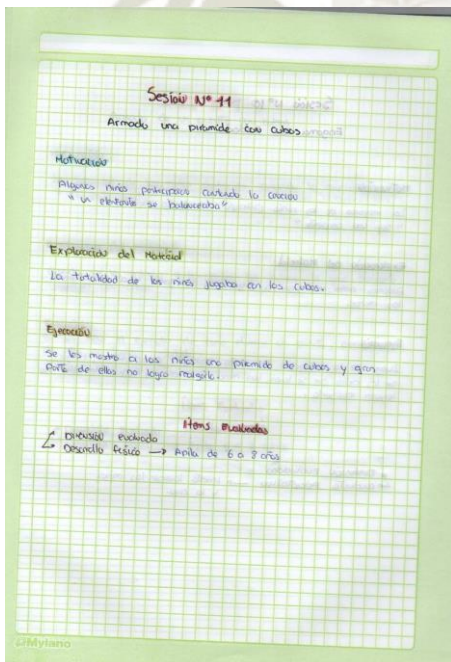 Sesión Nº 11
Armado una piramide con cubos
Motivación
Algunos niños participaron cantando la canción
" un elefante se balanceaba"
Exploración del Material
La totalidad de los niños jugaba con los cubos.
Ejecución
Se les mostro a los niños una piramide de cubos y gran
parte de ellos no logro realizarlo.
Items Evaluados
Dimensión evaluada
Desarrollo físico → Apila de 6 a 8
Mylano